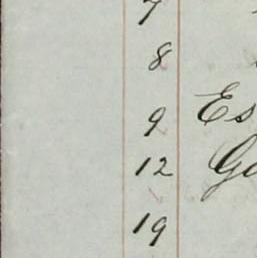 7
8
9 Es
12 Go
19